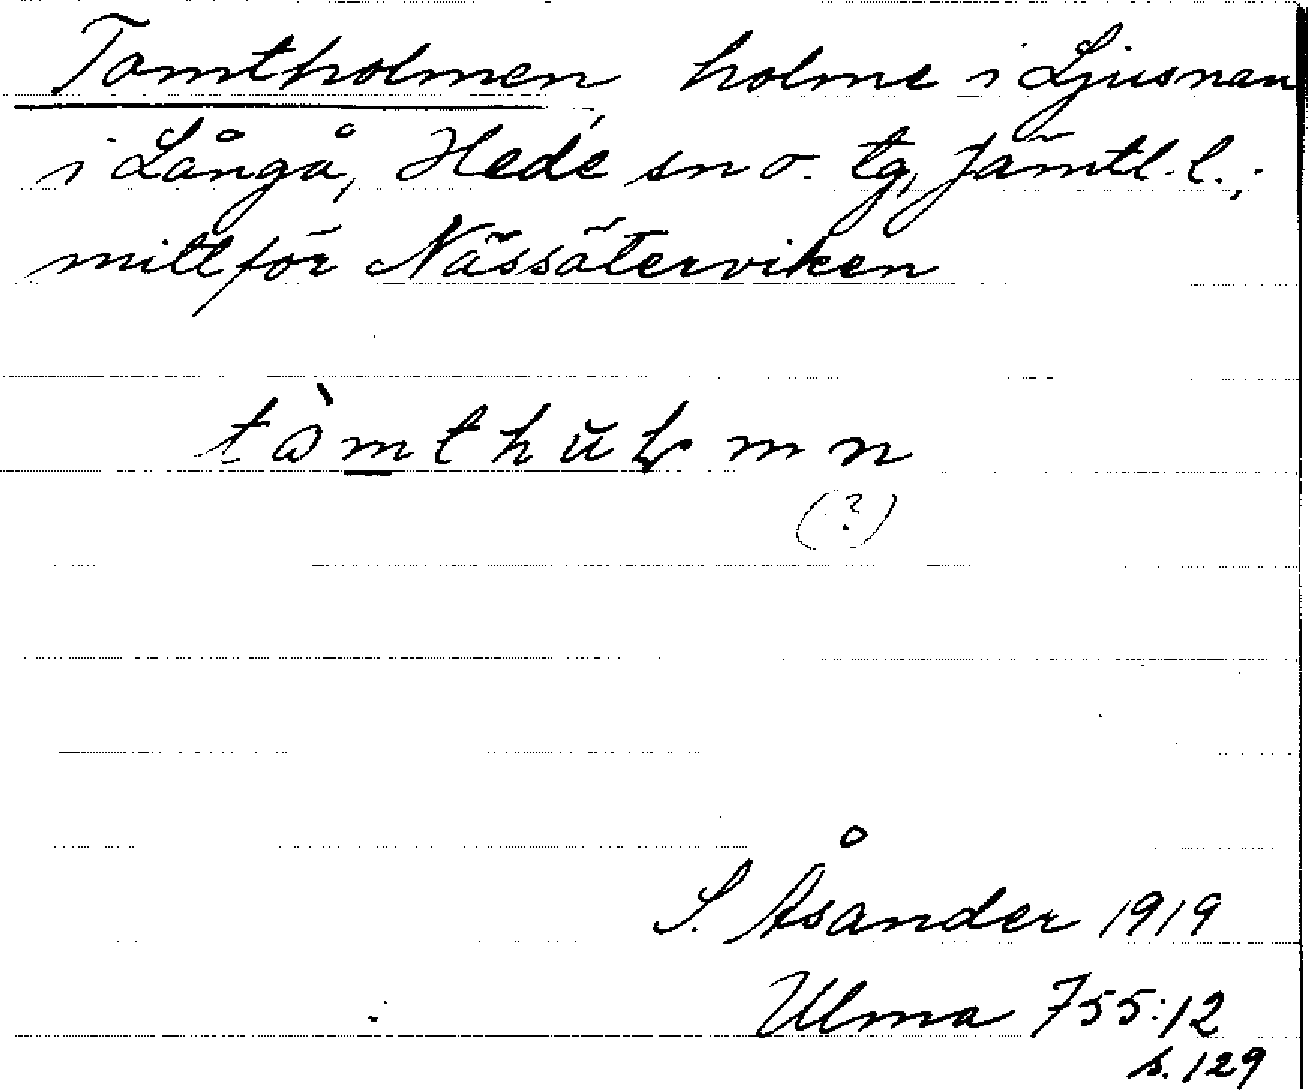 Tomtholmen, holme i Ljusnan
i Långå, Hede sn o. tg, Jämtl. l.;
mitt för Nässäterviken
(?)
S. Åsander 1919
Ulma 755:12
s. 129